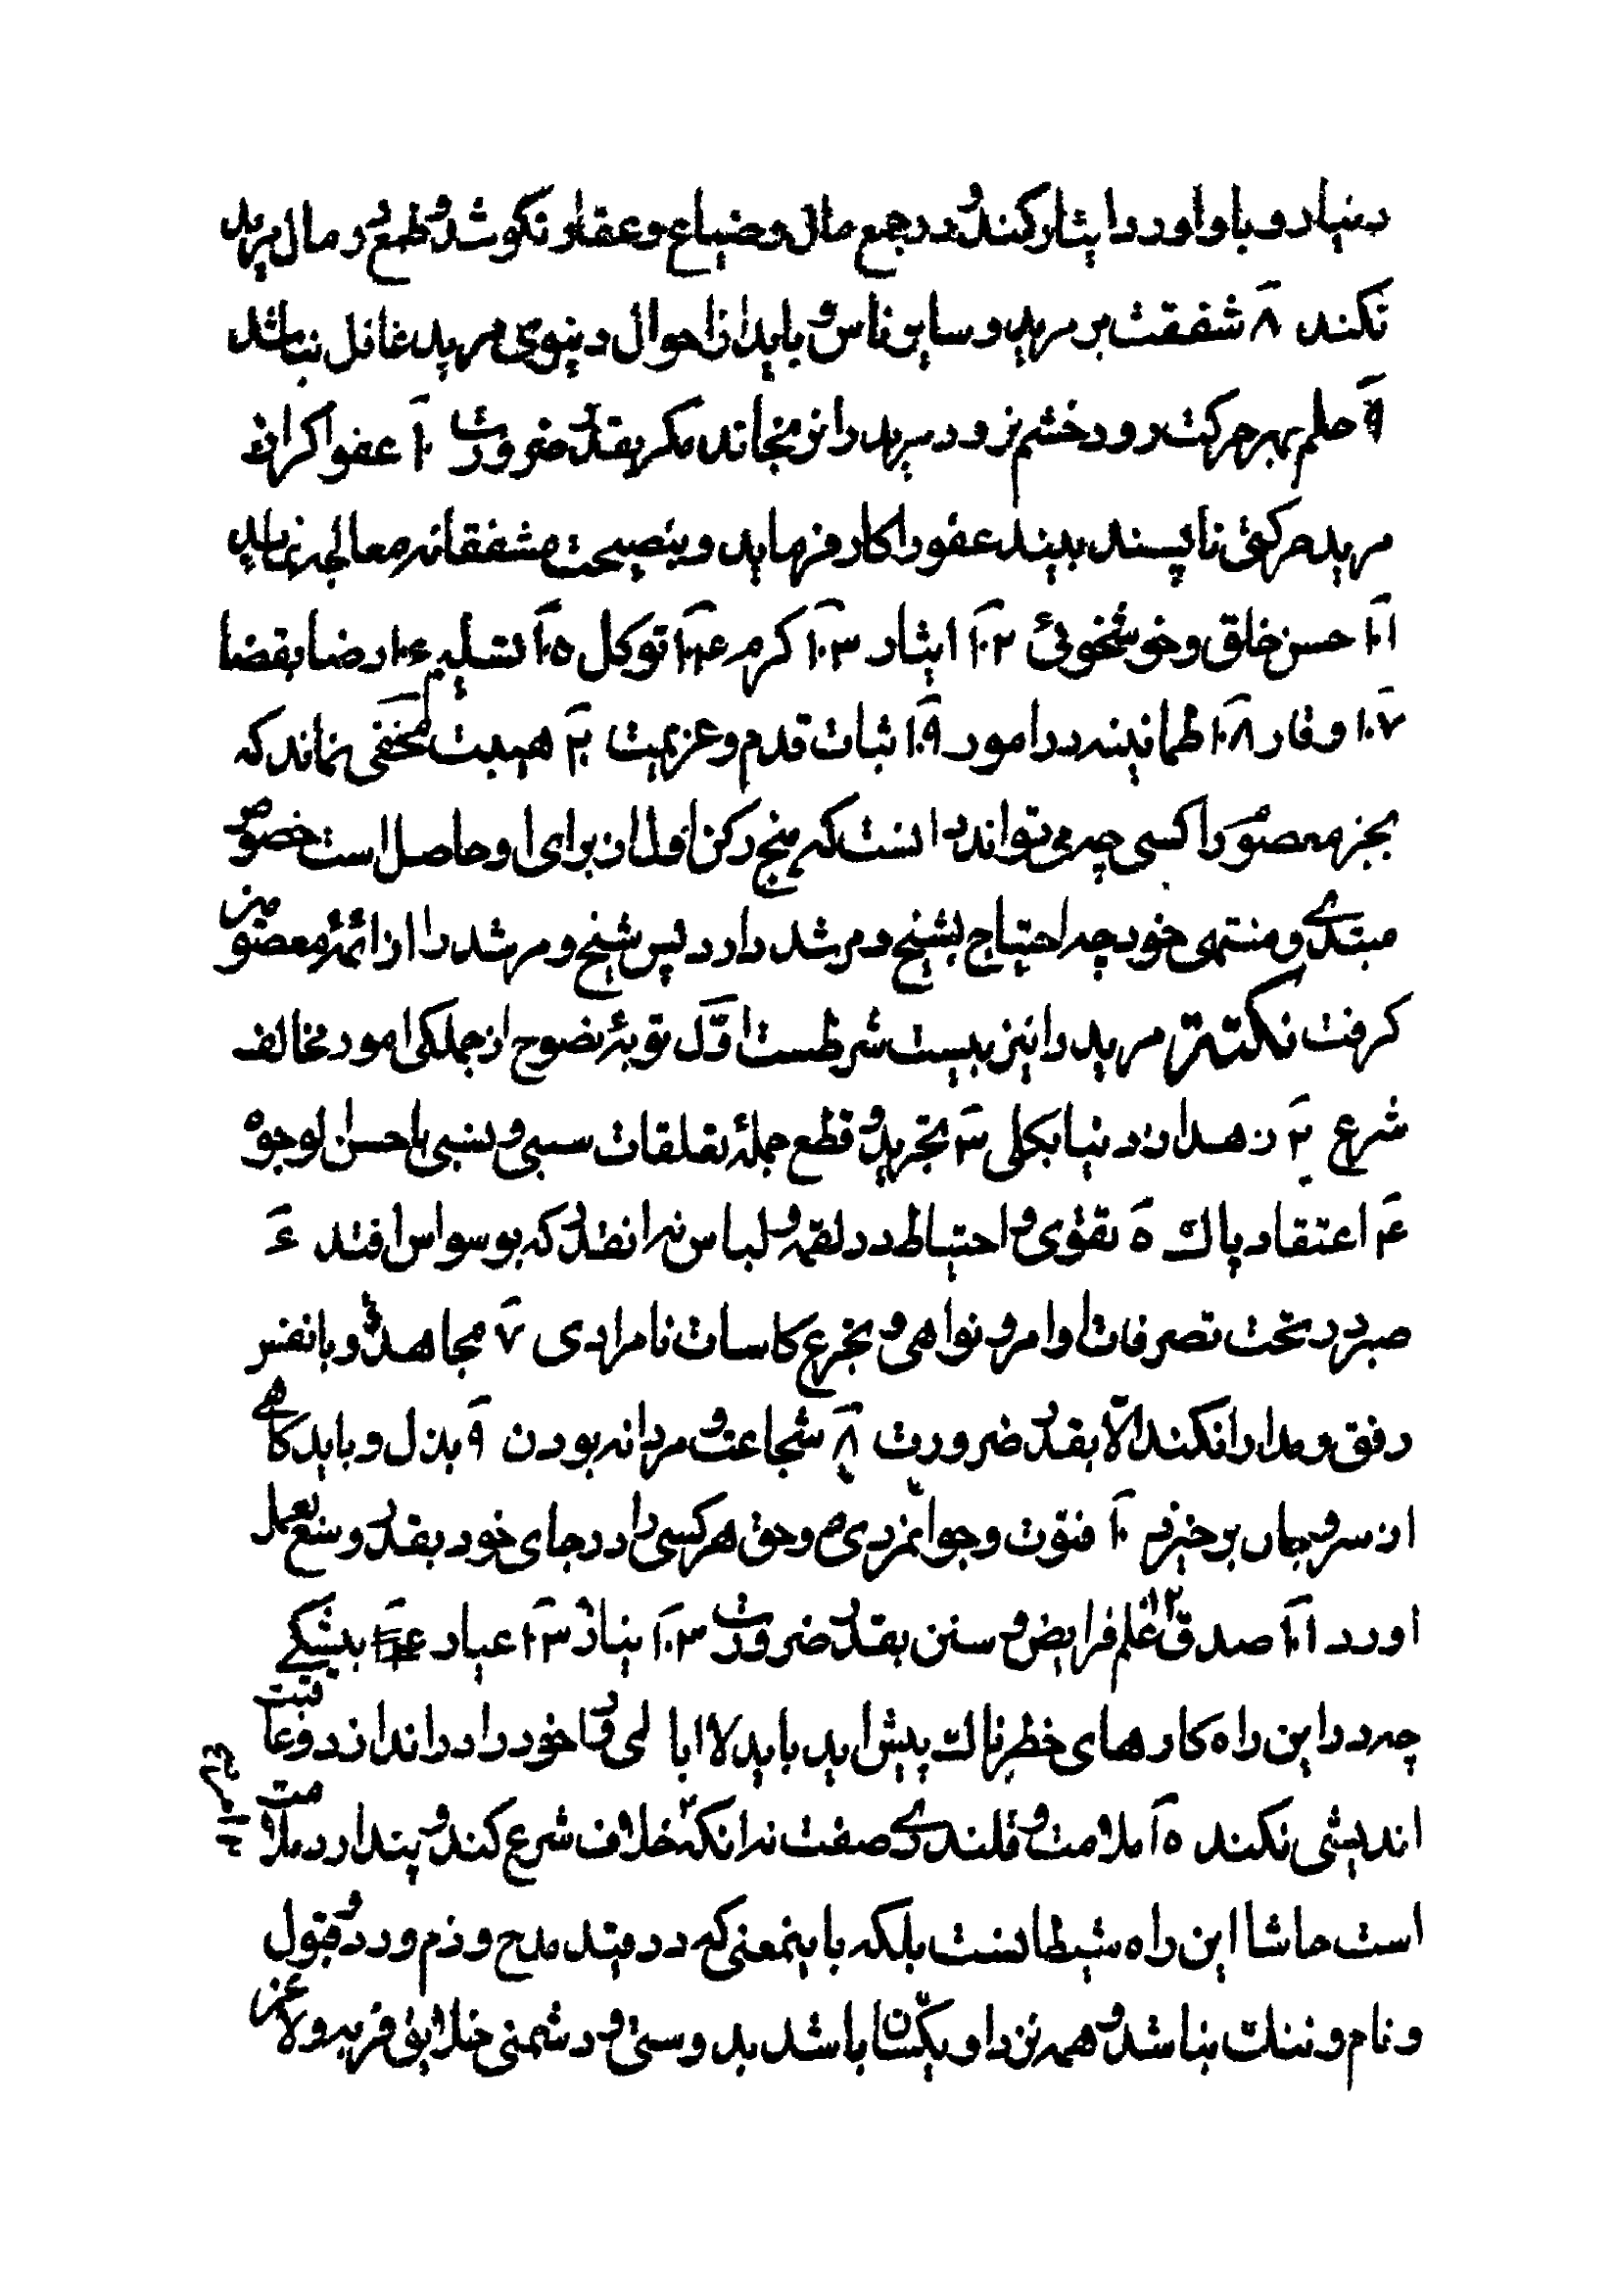 دنیا رو باو اورد ایثار کند و در جمع مال و ضیاع و عقار نکوشد و طمع در مال مرید
نکند ۸ شفقت بر مرید و سایر ناس و باید از احوال دنیوی مرید غافل نباشد
۹ حلم بهر حرکت زود خشم نرود مرید را نرنجاند مکر بقدر ضرورت ۱۰ عفو اکر از
مرید حرکتی ناپسند بیند عفو را کار فرماید و بنصیحت مشفقانه معالجه نماید
۱۰۱ حسن خلق و خوشخوئی ۱۰۲ ایثار ۱۰۳ کرم ۱۰۴ توکل ۱۰۵ تسلیم ۱۰۶ رضا بقضا
۱۰۷ وقار ۱۰۸ طمانینه در امور ۱۰۹ ثبات قدم و عزیمت ۲۰ هیبت مخفی نماند که
بجز معصوم را کسی چه می تواند دانست که پنج رکن افلان برای او حاصل است خصوص
مبتدی و منتهی خود چه احتیاج بشیخ و مرشد دارد پس شیخ و مرشد را از ائمۀ معصومین
کرفت نکتة مرید را نیز بیست شرطست اوّل توبۀ نصوح از جملکی امور مخالف
شرع ۲ زهد از دنیا بکلی ۳ تجرید و قطع جملۀ تعلقات سببی و نسبی باحسن لوجوه
۴ اعتقاد پاك ۵ تقوی و احتیاط در لقمه و لباس نه انقدر که بوسواس افتد ۶
صبر در تحت تصرفات اوامر و نواهی و تجرع کاسات نامرادی ۷ مجاهده و با نفس
رفق و مدارا نکند الّا بقدر ضرورت ۸ شجاعت و مردانه بودن ۹ بذل و باید کاهی
از سر جان برخیزم ۱۰ فتوّت و جوانمردی و حق هر کسی را در جای خود بقدر وسع بعمل
اورد ۱۰۱ صدق ۱۲ علم فرایض و سنن بقدر ضرورت ۱۰۳ نیاز ۱۰۳ عیار ۱۰۴ بیشکی
چه در این راه کارهای خطرناك پیش اید باید لا ابا لی وار خود را در اندازد و عاقبت
اندیشی نکند ۱۵ ملامت و قلندری صفت نه انکه خلاف شرع کند و پندارد ملامت
است حاشا این راه شیطانست بلکه باینمعنی که در قید مدح و ذم و رد و قبول
و نام و ننك نباشد و همه نزد او یکسان باشد بدوستی و دشمنی خلایق فربه و لاغر